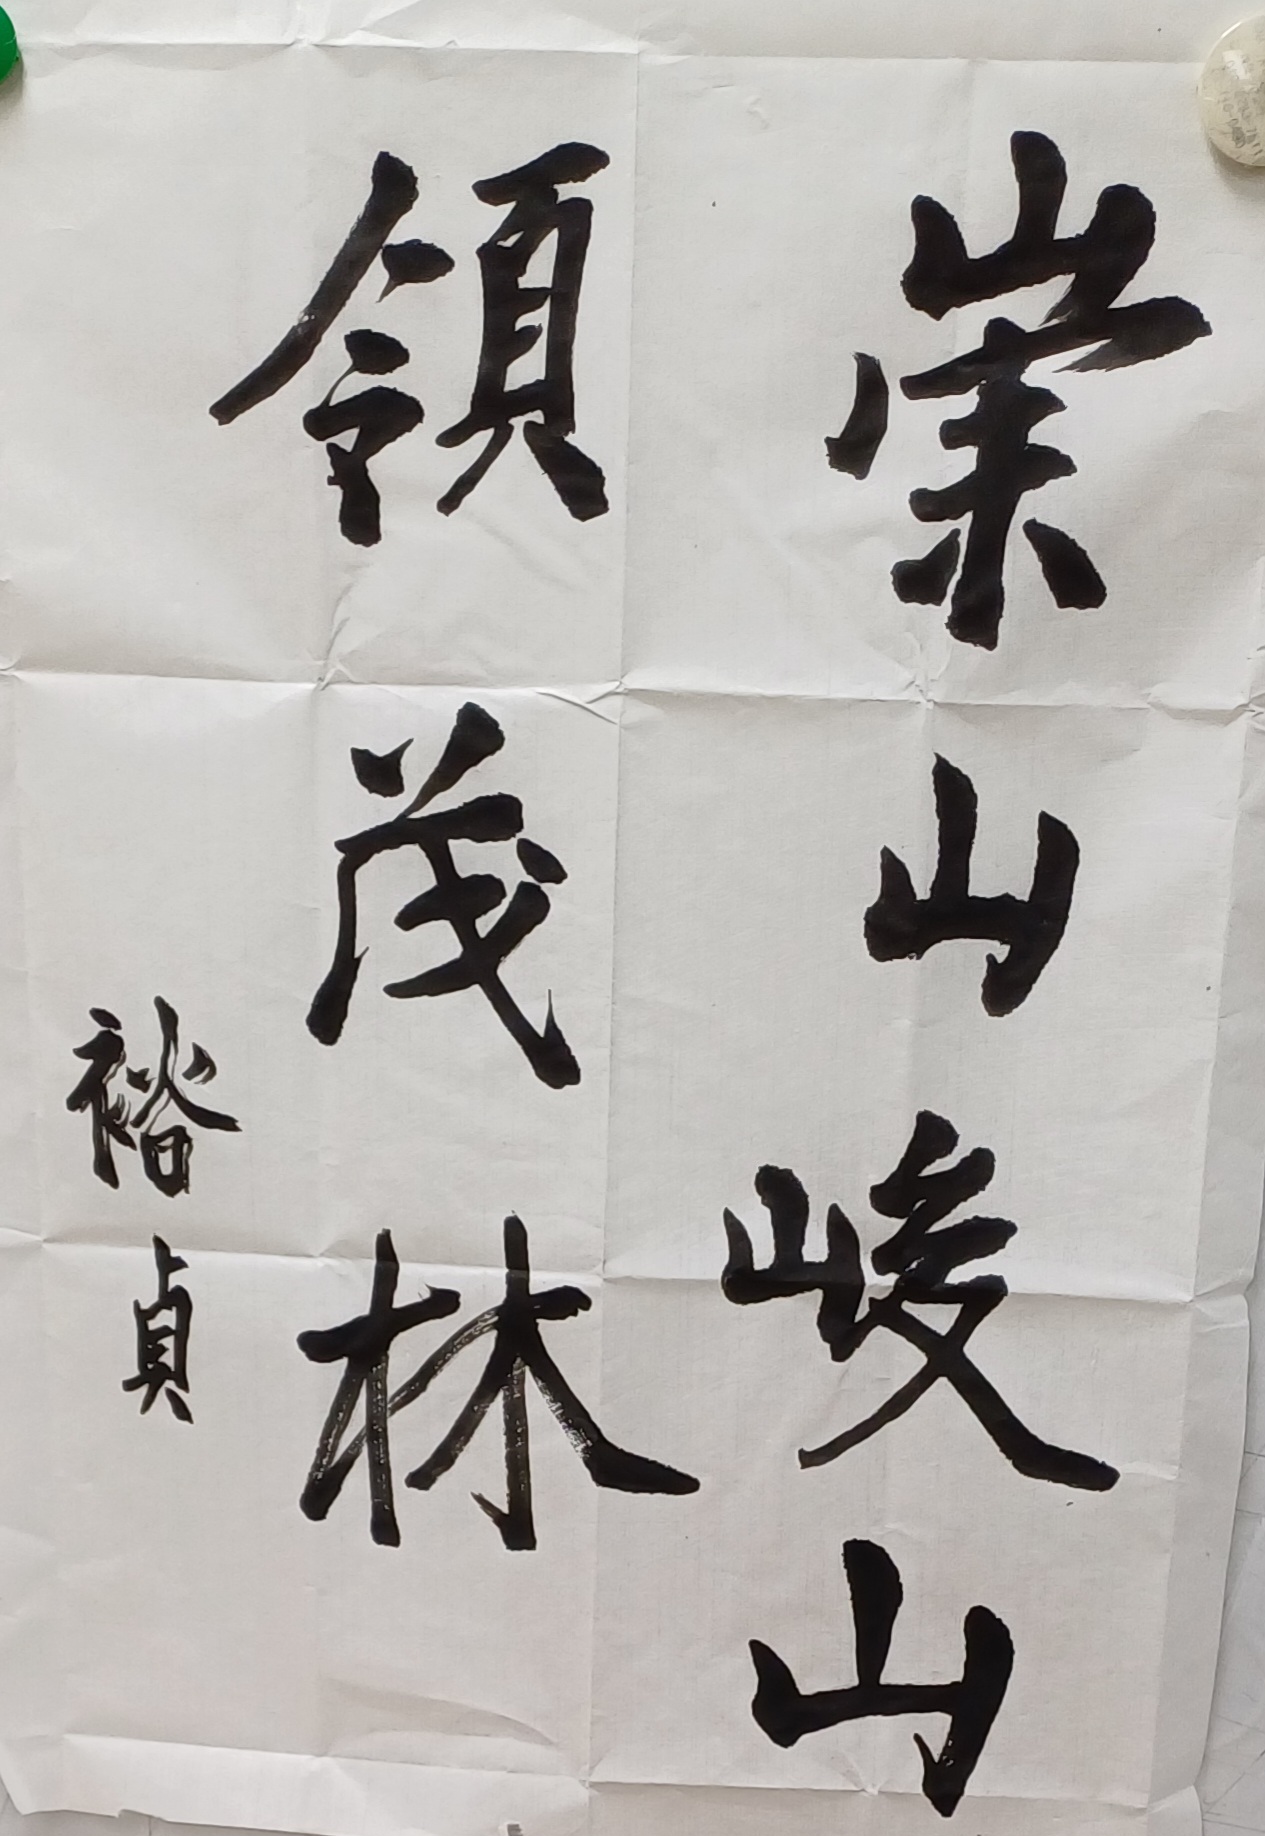 崇山峻山
領茂林
裕貞